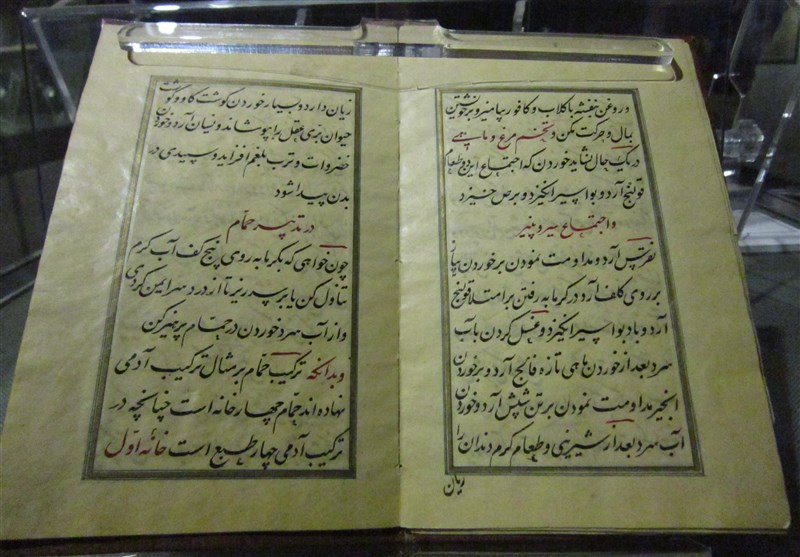 و روغن بنفشه با کلاب و کافور بیامیز و برخویشتن
بمال و حرکت مکن و تخم مرغ و ماهی
در یک حال نشاید خوردن که اجتماع این دو طعام
قولنج آرد و بواسیر انکیزد و برص خیزد
و اجتماع سیر و پنیر
نقرس آرد و مداومت نمودن بر خوردن پیاز
بر روی کلف آرد در کرمابه رفتن بر امتلا قولنج
آرد و باد بواسیر انکیزد و غسل کردن بآب
سرد بعد از خوردن ماهی تازه فالج آرد و بر خوردن
انجیر مداومت نمودن بر تن شپش آرد و خوردن
آب سرد بعد از شیرینی و طعام کرم دندان را
زیان
زیان دارد و بسیار خوردن کوشت کاو و کوشت
حیوان عقل را بپوشاند و نسیان آرد و خوردن
خضروات و ترب بلغم افزاید و سپیدی در
بدن پیدا شود
در تدبیر حمام
چون خواهی که بکرمابه روی پنج کف آب کرم
تناول کن یا بر سر ریز تا از درد سر ایمن کردی
و از آب سرد خوردن در حمام پرهیز کن
و بدانکه ترکیب حمام بر مثال ترکیب آدمی
نهاده اند حمام چهار خانه است چنانچه در
ترکیب آدمی چهار طبع است خانه اول